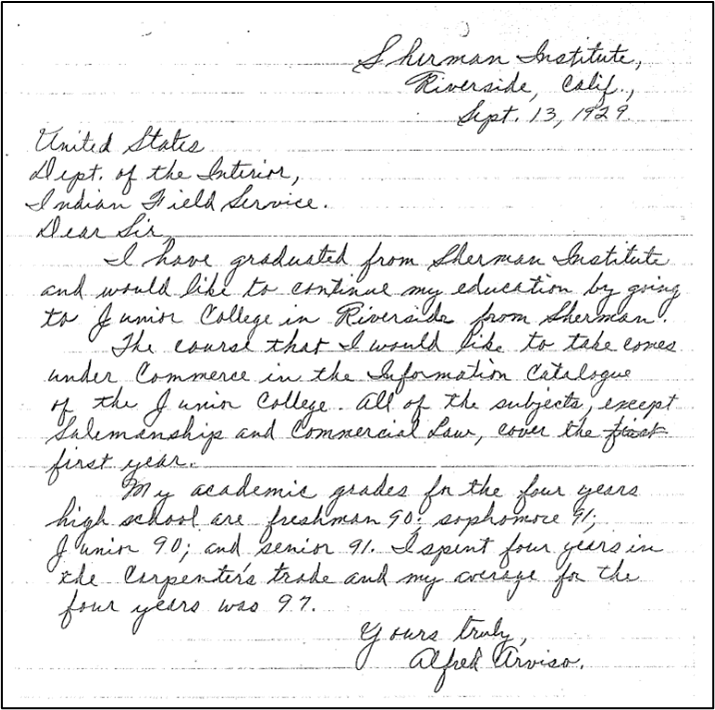 Sherman Institute,
Riverside, Calif.,
Sept. 13, 1929.
United States
Dept. of the Interior,
Indian Field Service.
Dear Sir,
I have graduated from Sherman Institute
and would like to continue my education by going
to Junior College in Riverside from Sherman.
The course that I would like to take comes
under Commerce in the Information Catalogue
of the Junior College. All of the subjects, except
Salemanship and Commercial Law, cover the first
first year.
My academic grades for the four years
high school are freshman 90; sophomore 91;
Junior 90; and senior 91. I spent four years in
the Carpenter's trade and my average for the
four years was 97.
Yours truly,
Alfred Arviso.